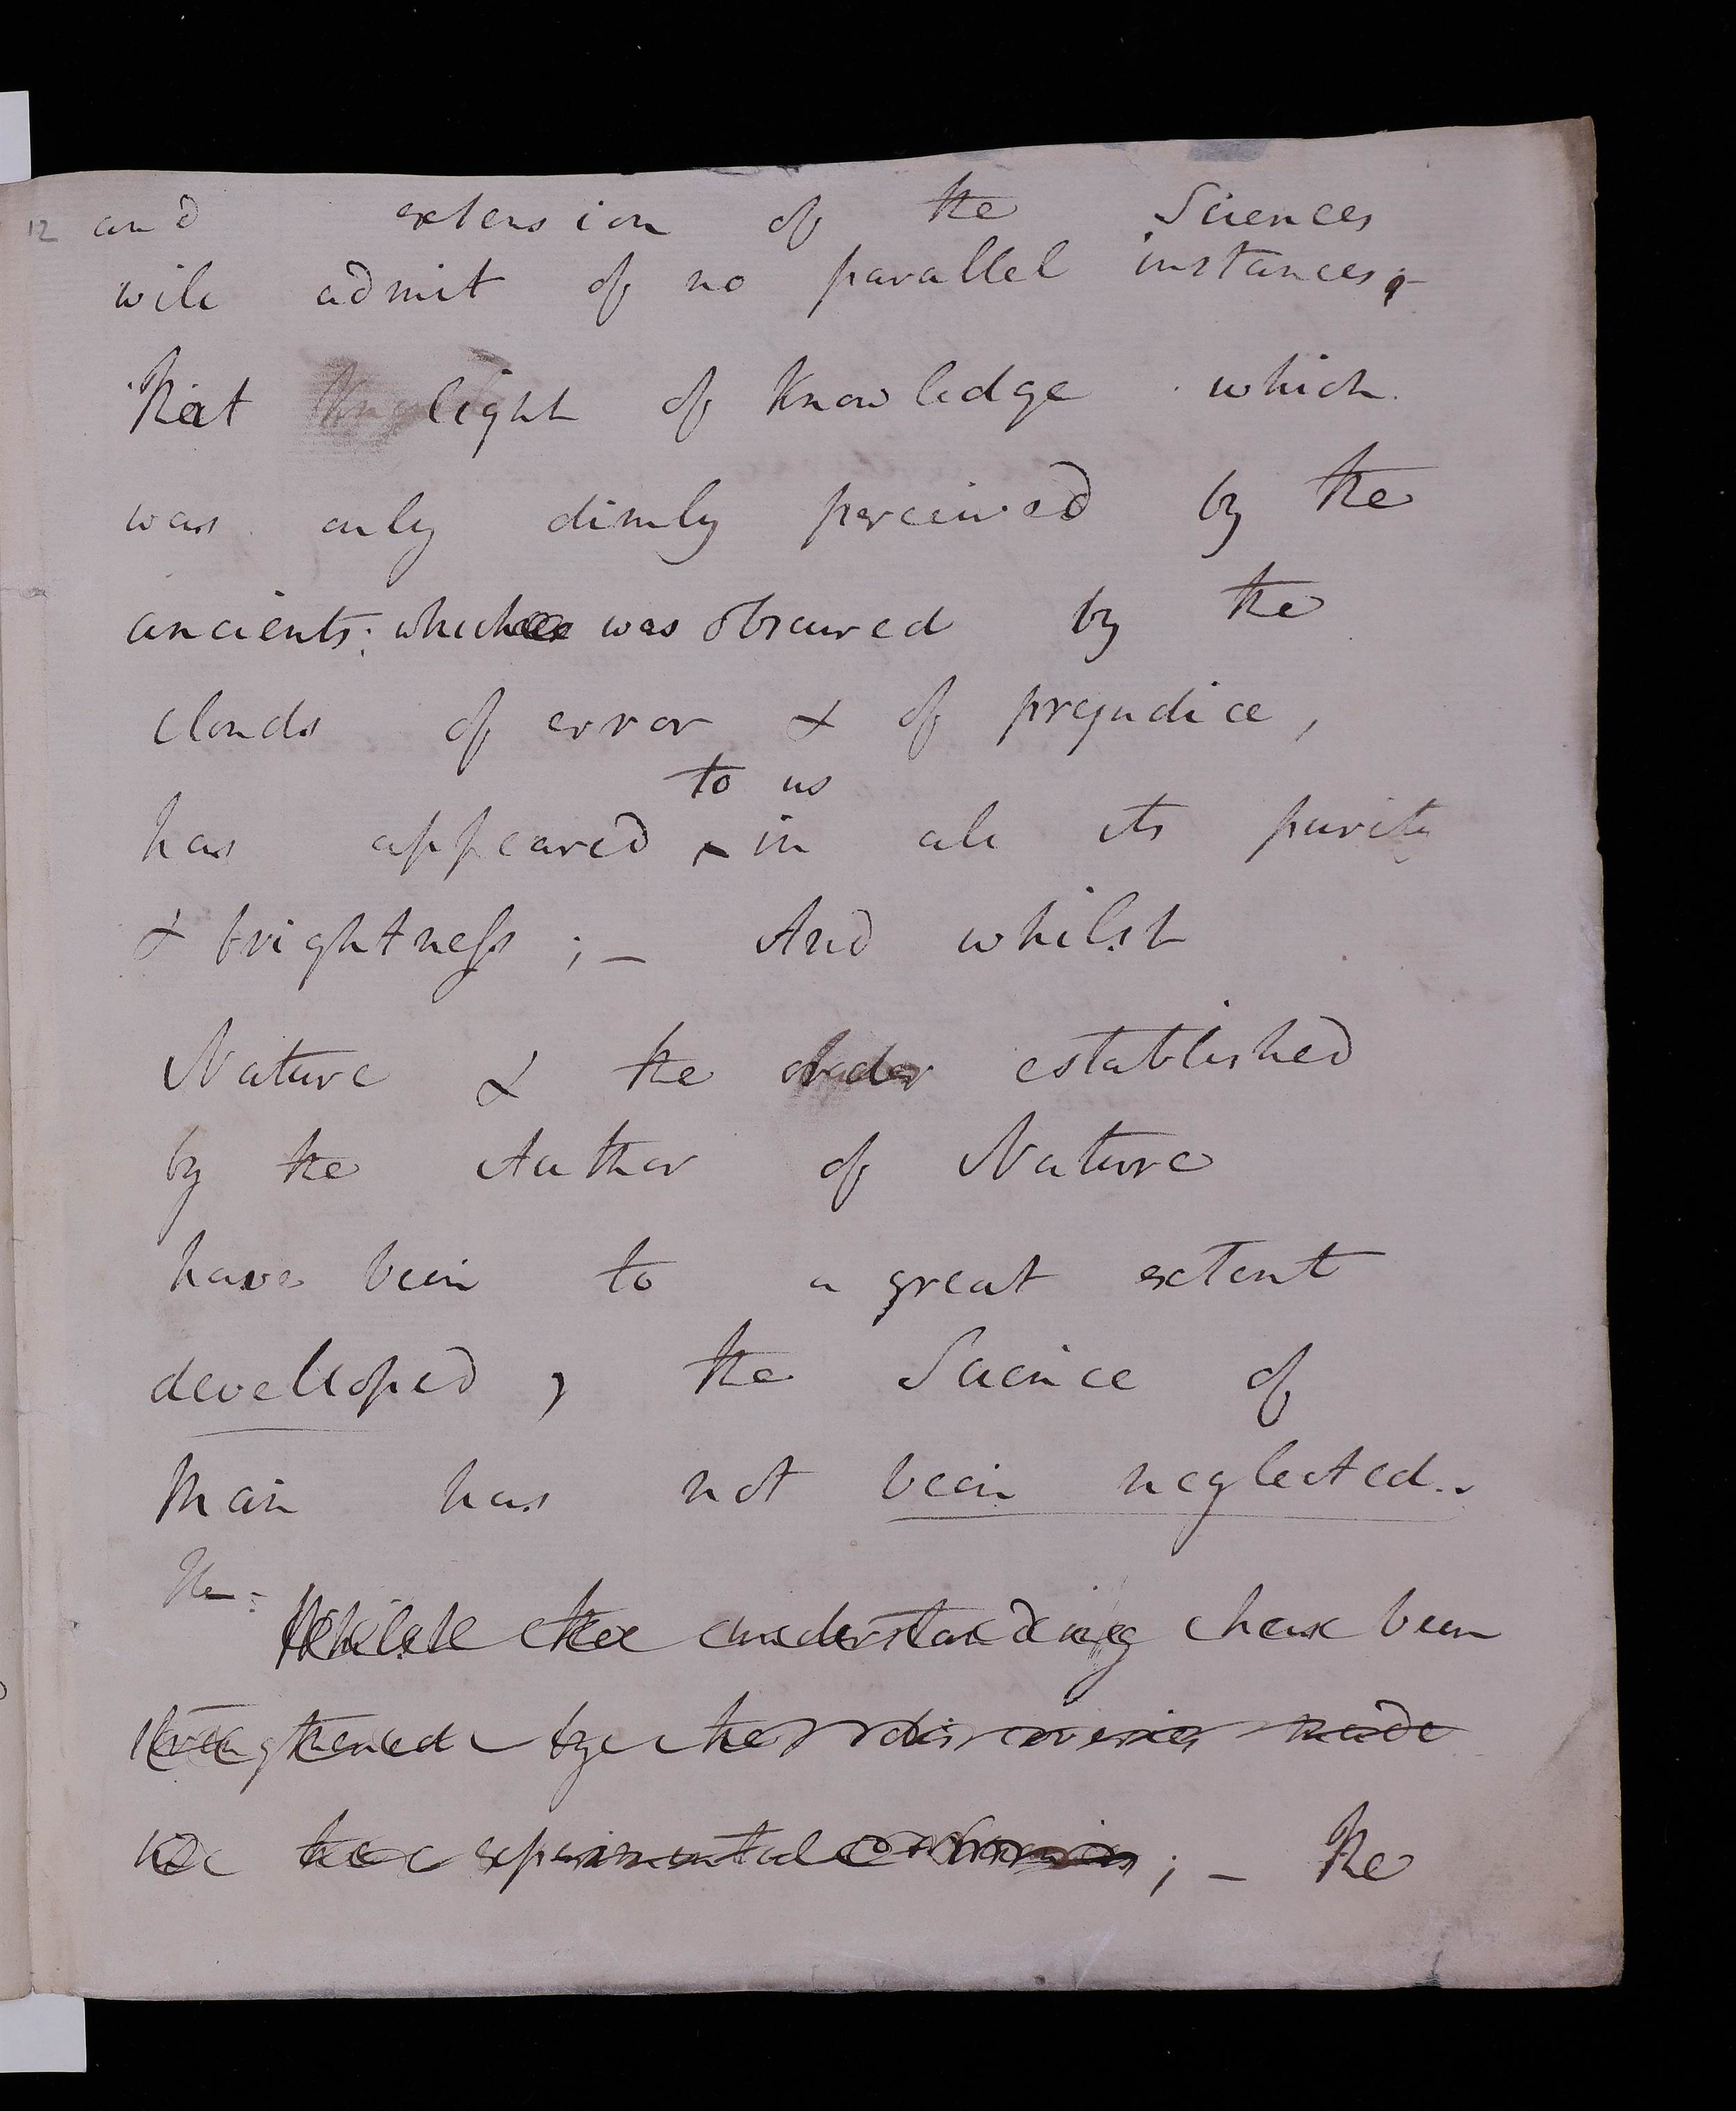 12 and extension of the Sciences
will admit of no parallel instances,-
That light of Knowledge which
was only dimly perceived by the
ancients; which was obscured by the
clouds of error & of prejudice,
to us
has appeared ^ in all its purity
& brightness ; – And whilst
Nature & the order established
by the Author of Nature
have been to a great extent
developed , the Science of
Man has not been neglected..
The -
Whilst the understanding has been
strengthened by the discoveries made
in the experimental ; – The